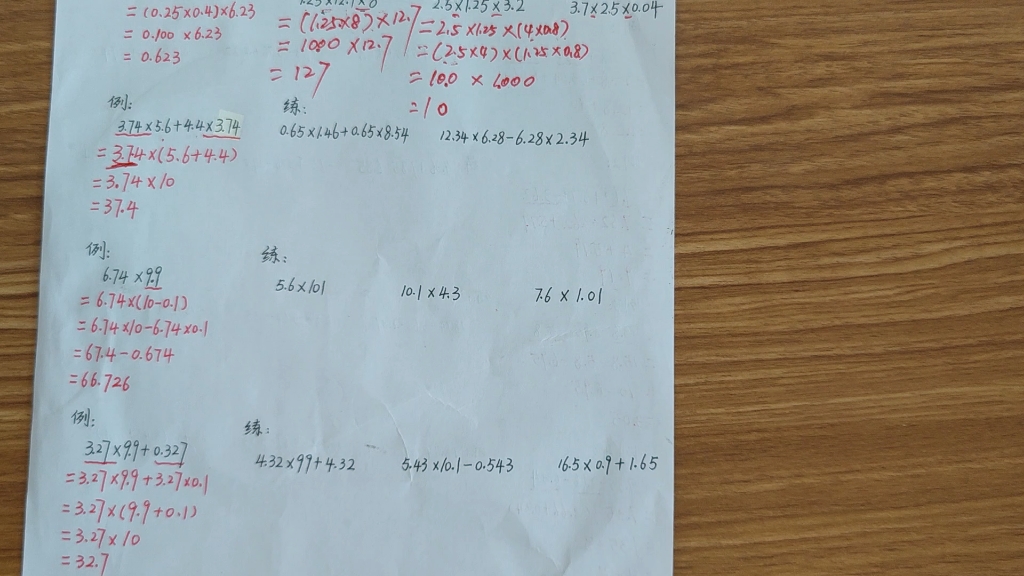 =(0.25×0.4)×6.23
=0.100×6.23
=0.623
=(1.25×8)×12.7
=1000×12.7
=127
2.5×1.25×3.2
=2.5×1.25×(4×0.8)
=(2.5×4)×(1.25×0.8)
=10.0×1.000
=10
3.7×2.5×0.04
例:
3.74×5.6+4.4×3.74
=3.74×(5.6+4.4)
=3.74×10
=37.4
练:
0.65×1.46+0.65×8.54
12.34×6.28-6.28×2.34
例:
6.74×9.9
=6.74×(10-0.1)
=6.74×10-6.74×0.1
=67.4-0.674
=66.726
练:
5.6×101
10.1×4.3
7.6×1.01
例:
3.27×9.9+0.327
=3.27×9.9+3.27×0.1
=3.27×(9.9+0.1)
=3.27×10
=32.7
练:
4.32×99+4.32
5.43×10.1-0.543
16.5×0.9+1.65